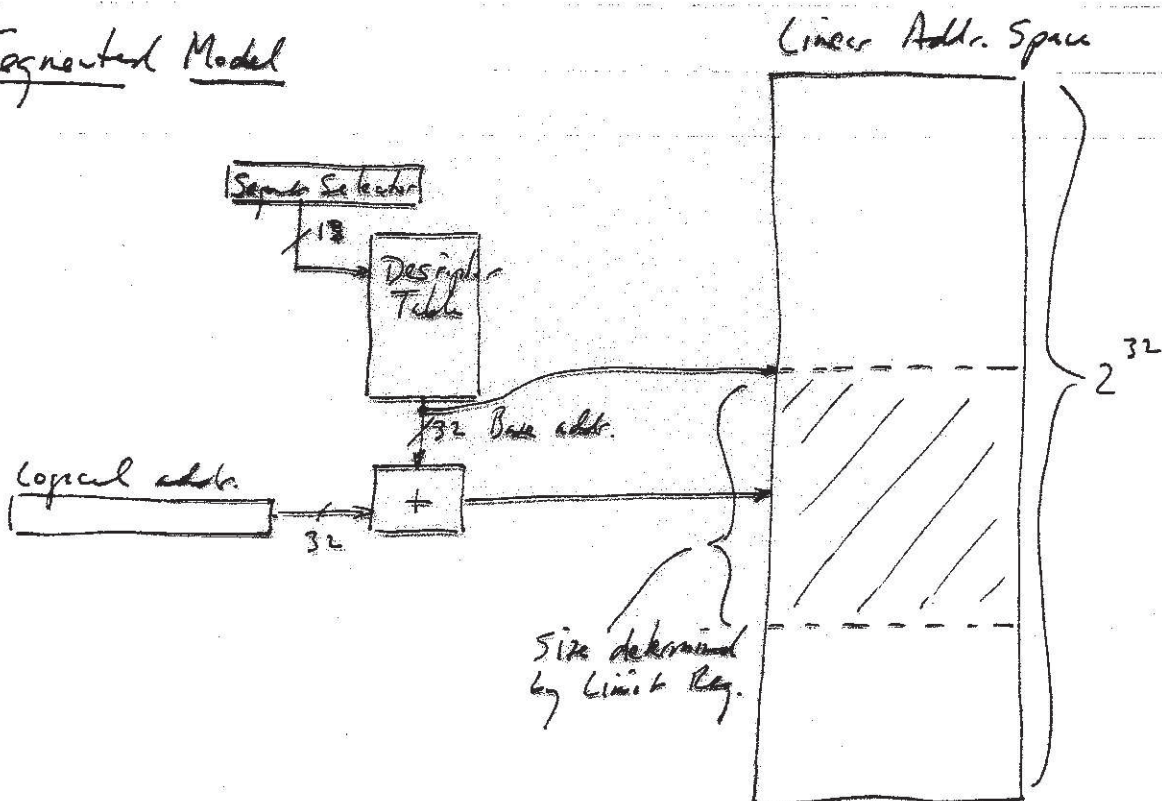 Segmented Model
Linear Addr. Space
Segment Selector
13
Descriptor
Table
32 Base addr.
Logical addr.
+
32
2^32
Size determined
by Limit Reg.